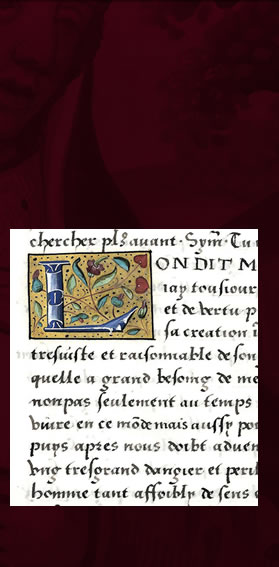 chercher pl9 auant. Sym. Tu
LON DIT M
iay tousiour
et de vertu p
sa creation
tresiuste et raisonnable de son
quelle a grand besoing de me
non pas seulement au temps
viure en ce mōde mais aussy po
puys apres nous doibt aduen
vng tresgrand dangier et peril
homme tant affoibly de sens e